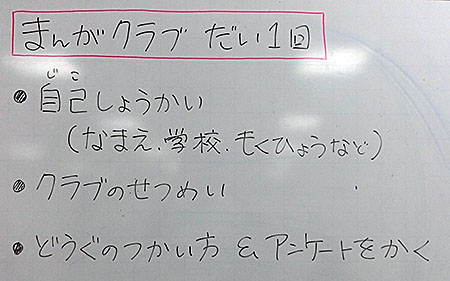 まんがクラブ だい1回
じこ
● 自己しょうかい
(なまえ、学校、もくひょうなど)
● クラブのせつめい
● どうぐのつかい方 & アンケートをかく